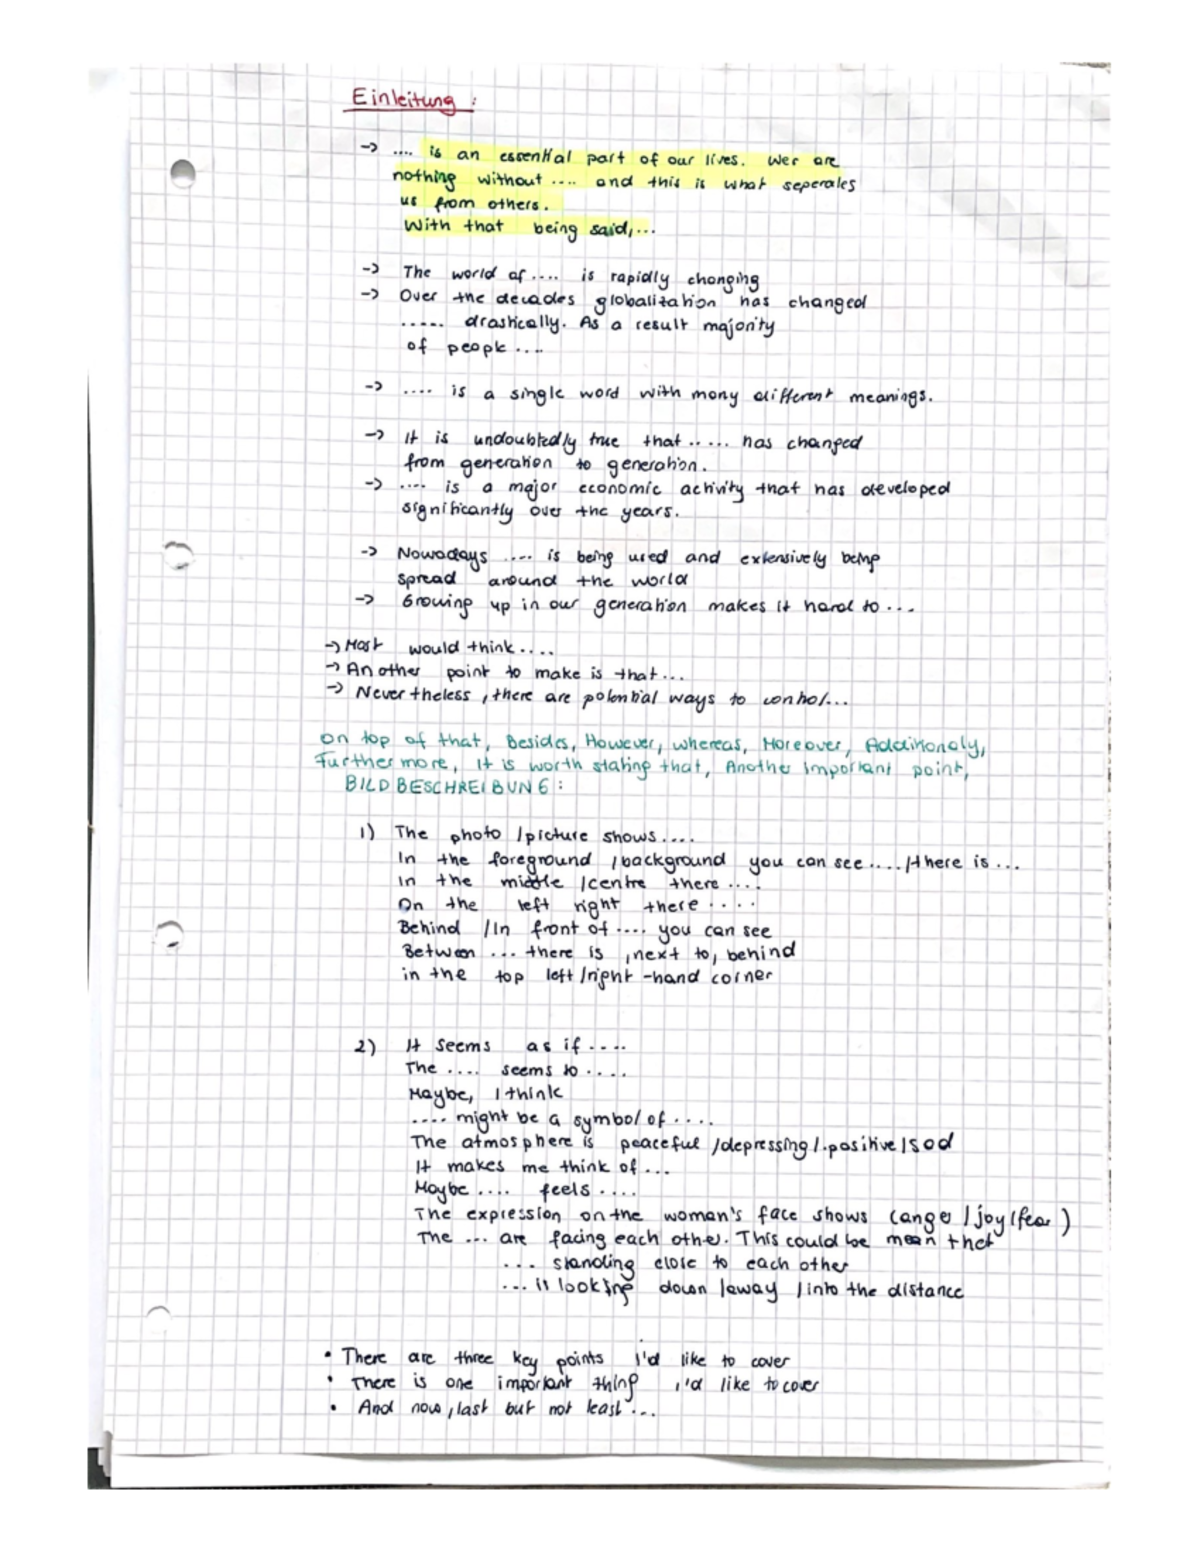 Einleitung :
-> .... is an essential part of our lives. Wer are
nothing without .... and this is what seperales
us from others.
With that being said,...
-> The world of .... is rapidly changing
-> Over the decades globalization has changed
..... drastically. As a result majority
of people ....
-> .... is a single word with many different meanings.
-> It is undoubtedly true that ..... has changed
from generation to generation.
-> .... is a major economic activity that has developed
significantly over the years.
-> Nowadays .... is being used and extensively being
spread around the world
-> Growing up in our generation makes it hard to ...
-> Most would think ....
-> Another point to make is that...
-> Never theless, there are potential ways to control...
On top of that, Besides, However, whereas, Moreover, Additionaly,
Further more, It is worth stating that, Another important point,
BILDBESCHREIBUNG :
1) The photo /picture shows ....
In the foreground /background you can see ..../there is ...
In the middle /centre there ....
On the left right there ....
Behind /In front of .... you can see
Between ... there is ,next to, behind
in the top left/right -hand corner
2) It seems as if ....
The .... seems to .....
Maybe, I think
.... might be a symbol of ....
The atmosphere is peaceful /depressing/.positive/sad
It makes me think of ...
Maybe .... feels ....
The expression on the woman's face shows (anger /joy/fear )
The ... are facing each other. This could be mean that
... standing close to each other
... is looking down /away /into the distance
• There are three key points I'd like to cover
• There is one important thing I'd like to cover
• And now, last but not least ...